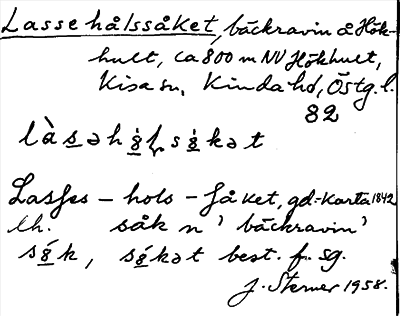 Lasse hålssåket, bäckravin å Hök-
hult, ca 800 m NV Hökhult,
Kisa sn, Kinda hd, Östg. l.
82
Lasses – hols – såket, gd.-karta 1842
lh. såk n 'bäckravin'
best. f. sg.
J. Sterner 1958.